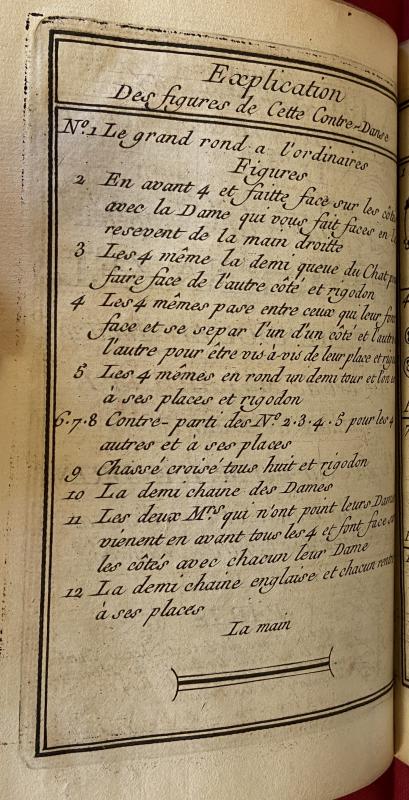 Explication
Des figures de Cette Contre-Danse
Nº. 1 Le grand rond a l'ordinaires
Figures
2 En avant 4 et faitte face sur les côt
avec la Dame qui vous fait faces en l
resevent de la main droitte
3 Les 4 même la demi queue du Chat p
faire face de l'autre côté et rigodon
4 Les 4 mêmes pase entre ceux qui leur fon
face et se separ l'un d'un côté et l'autre
l'autre pour être vis à-vis de leur place et rig
5 Les 4 mêmes en rond un demi tour et
à ses places et rigodon
6.7.8 Contre-parti des Nº 2.3.4.5 pour les 4
autres et à ses places
9 Chassé croisé tous huit et rigodon
10 La demi chaine des Dames
11 Les deux Mrs qui n'ont point leurs Dam
vienent en avant tous les 4 et font face s
les côtés avec chacun leur Dame
12 La demi chaine englaise et chacun rent
à ses places
La main